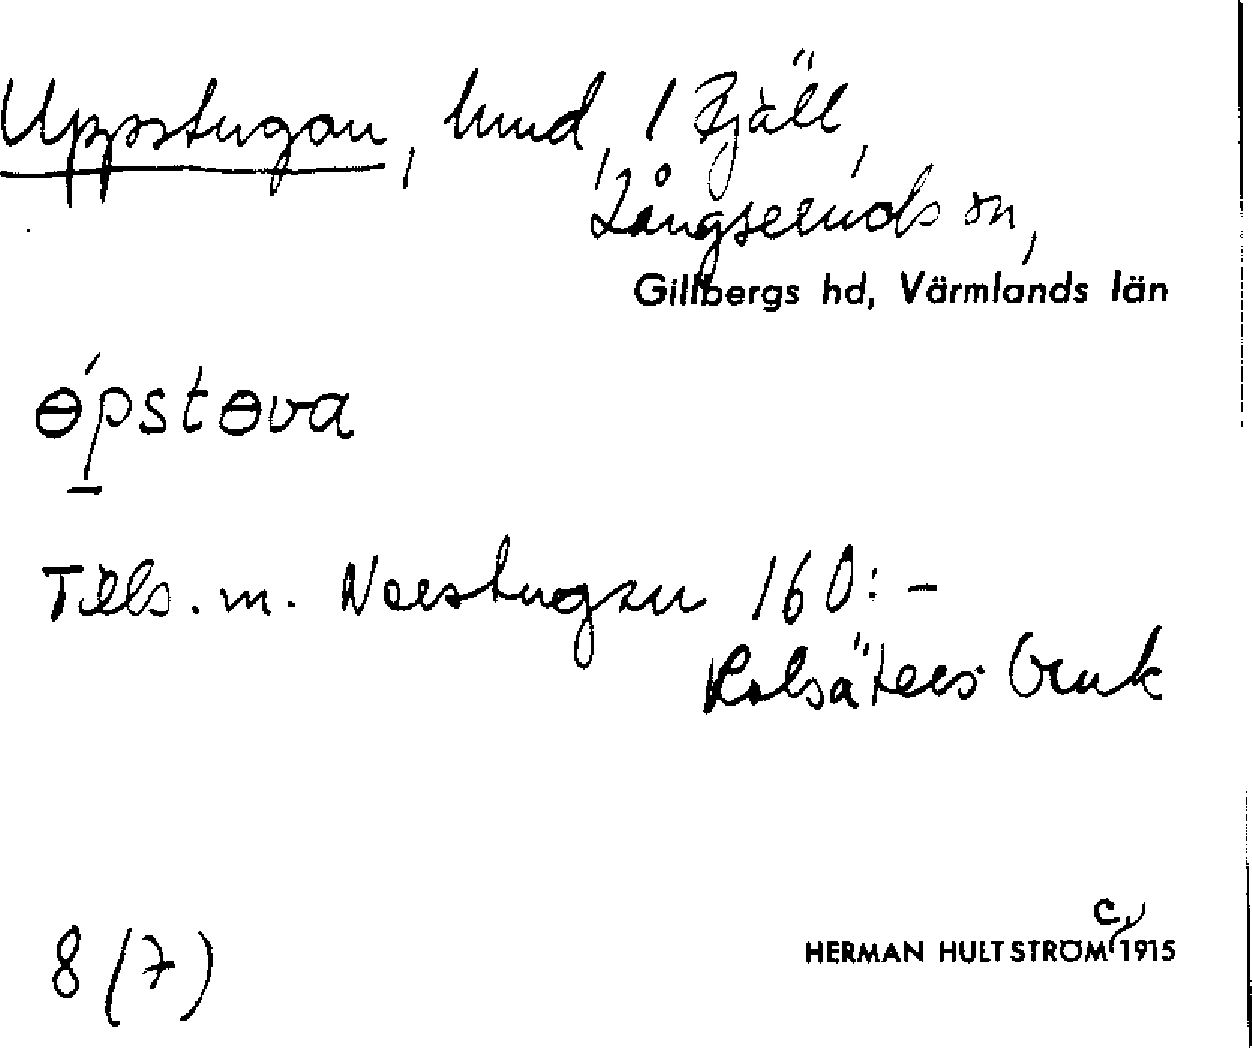 Uppstugan, hmd, 1 Fjäll,
Långseruds sn,
Gillbergs hd, Värmlands län
ɵ́pstɵva
Tills. m. Norstugan 160:-
Rolsäters bruk
8 (7)
c.
HERMAN HULTSTRÖM 1915